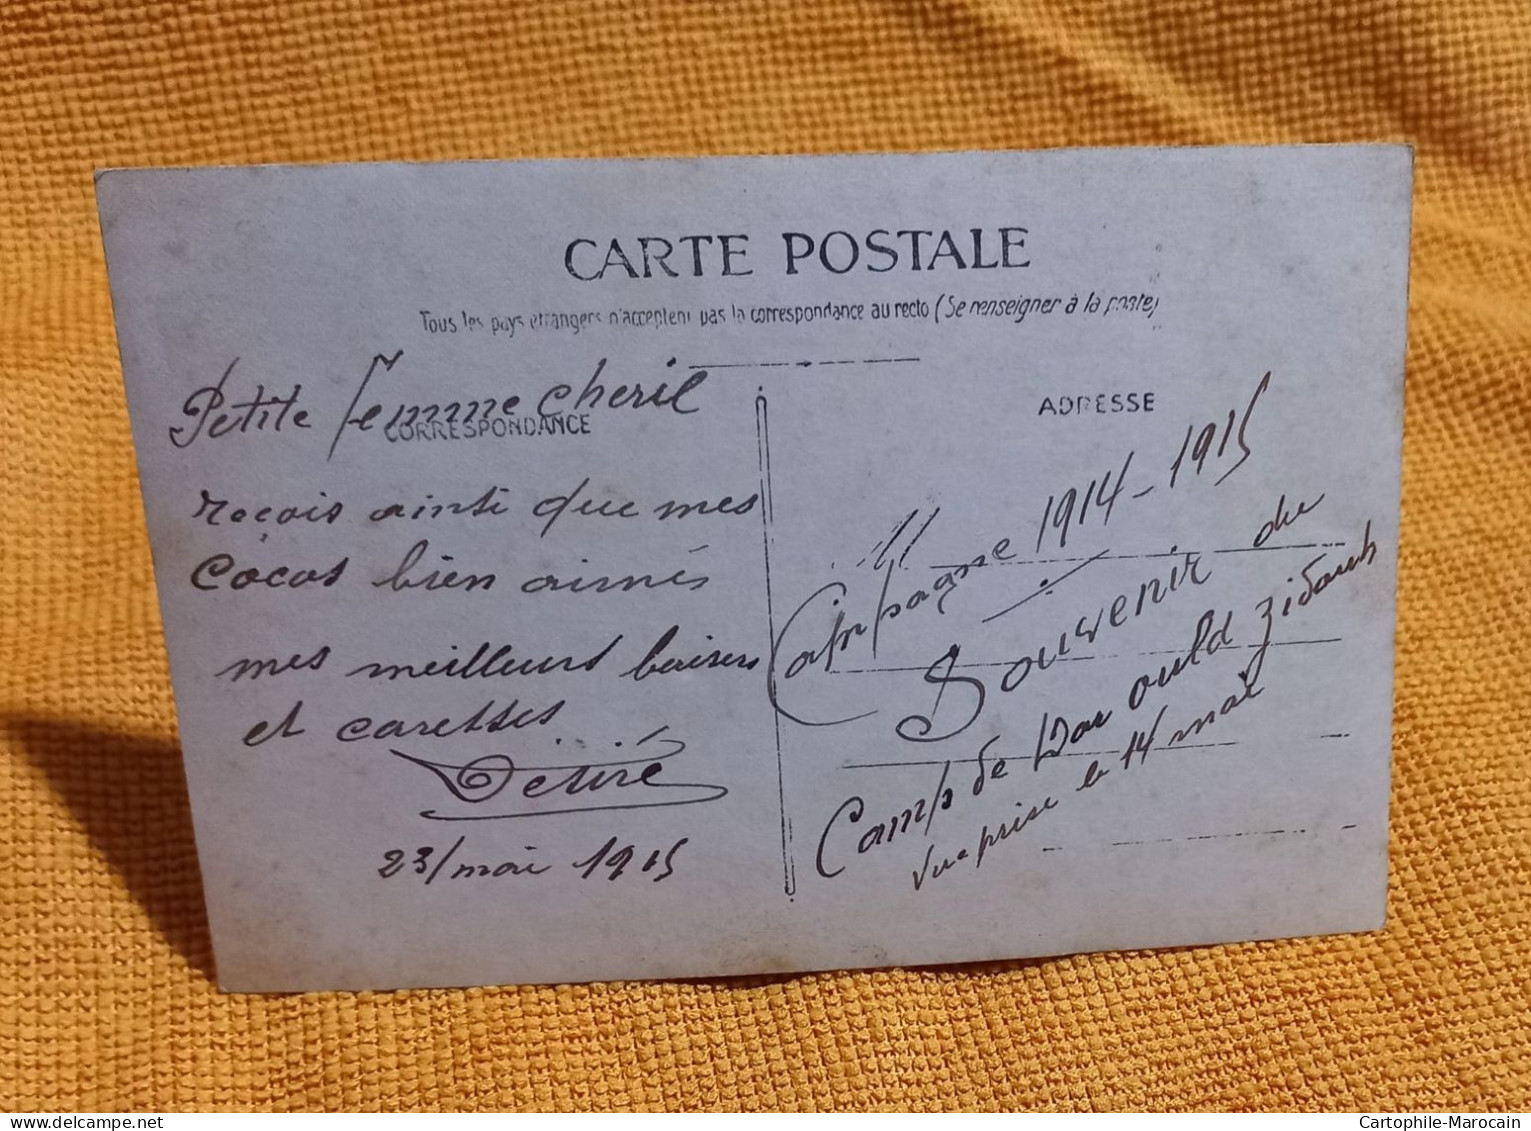 CARTE POSTALE
Tous les pays etrangers n'acceptent pas la correspondance au recto (Se renseigner à la poste)
CORRESPONDANCE
Petite femme cherie
reçois ainsi que mes
cocos bien aimés
mes meilleurs baisers
et caresses
Désiré
23/mai 1915
ADRESSE
Campagne 1914-1915
Souvenir du
Camp de Dar ould zidouh
Vue prise le 14 mai
Cartophile-Marocain